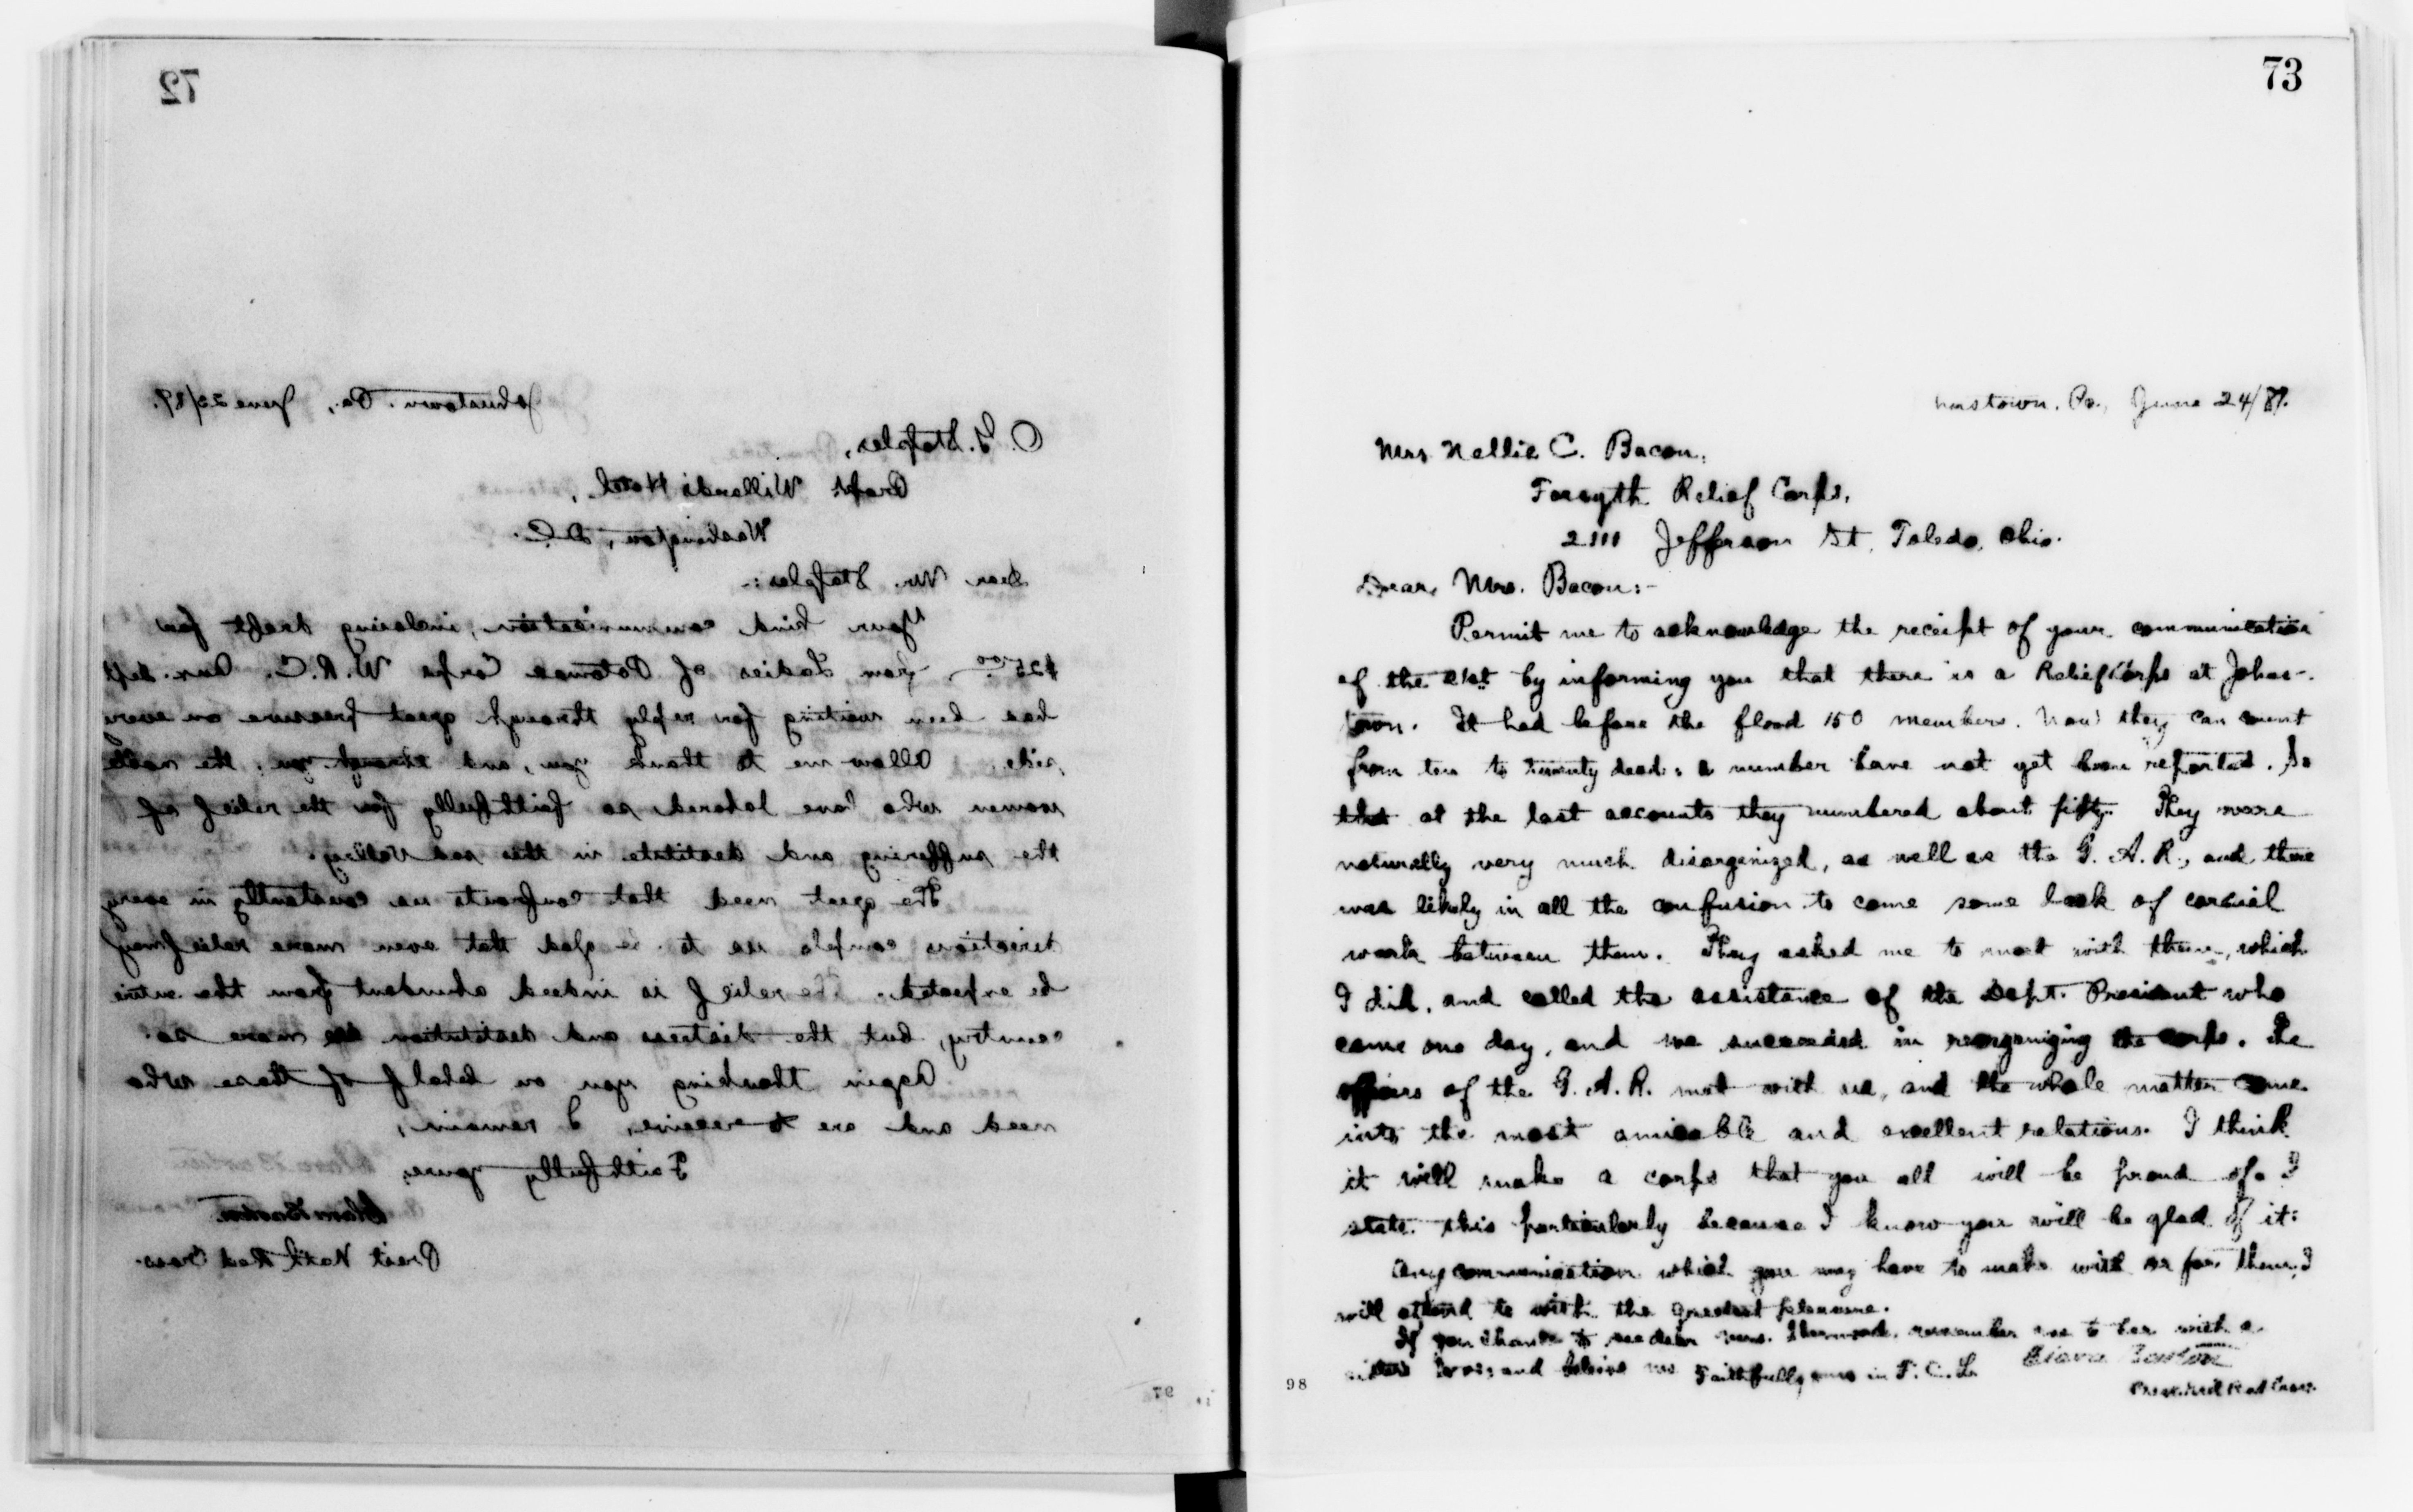 72
Johnstown. Pa., June 22/89.
O. G. Staples,
Propt. Willard's Hotel,
Washington, D.C.
Dear Mr. Staples:-
Your kind communication, inclosing draft for
$25.00, from Ladies of Potomac Corps W.R.C. Aux. Dept.
has been waiting for reply through great pressure on every
side. Allow me to thank you, and through you, the noble
women who have labored so faithfully for the relief of
the suffering and destitute in this sad Valley.
The great need that confronts us constantly in every
direction compels us to be glad that even more relief may
be expected. The relief is indeed abundant from the entire
country, but the distress and destitution are more so.
Again thanking you on behalf of those who
need and are to receive, I remain,
Faithfully yours,
Clara Barton
Prest Nat'l Red Cross.
97
73
nstown. Pa., June 24/89.
Mrs Nellie C. Bacon,
Forsyth Relief Corps,
2111 Jefferson St, Toledo, Ohio.
Dear, Mrs. Bacon:-
Permit me to acknowledge the receipt of your communication
of the 21st by informing you that there is a Relief Corps at Johns-
town. It had before the flood 150 members. Now they can count
from ten to twenty dead; a number have not yet been reported. So
that at the last accounts they numbered about fifty. They were
naturally very much disorganized, as well as the G. A. R., and there
was likely in all the confusion to come some lack of cordial
work between them. They asked me to meet with them, which
I did, and called the assistance of the Dept. President who
came one day, and we succeeded in reorganizing the corps. The
officers of the G. A. R. met with us, and the whole matter came
into the most amicable and excellent relations. I think
it will make a corps that you all will be proud of. I
state this particularly because I know you will be glad of it:
Any communication which you may have to make with or for them, I
will attend to with the greatest pleasure.
If you chance to see dear Mrs. Sherwood, remember me to her with a
sister's love, and believe me Faithfully yours in F. C. L. Clara Barton
98
Pres. Nat'l Red Cross.